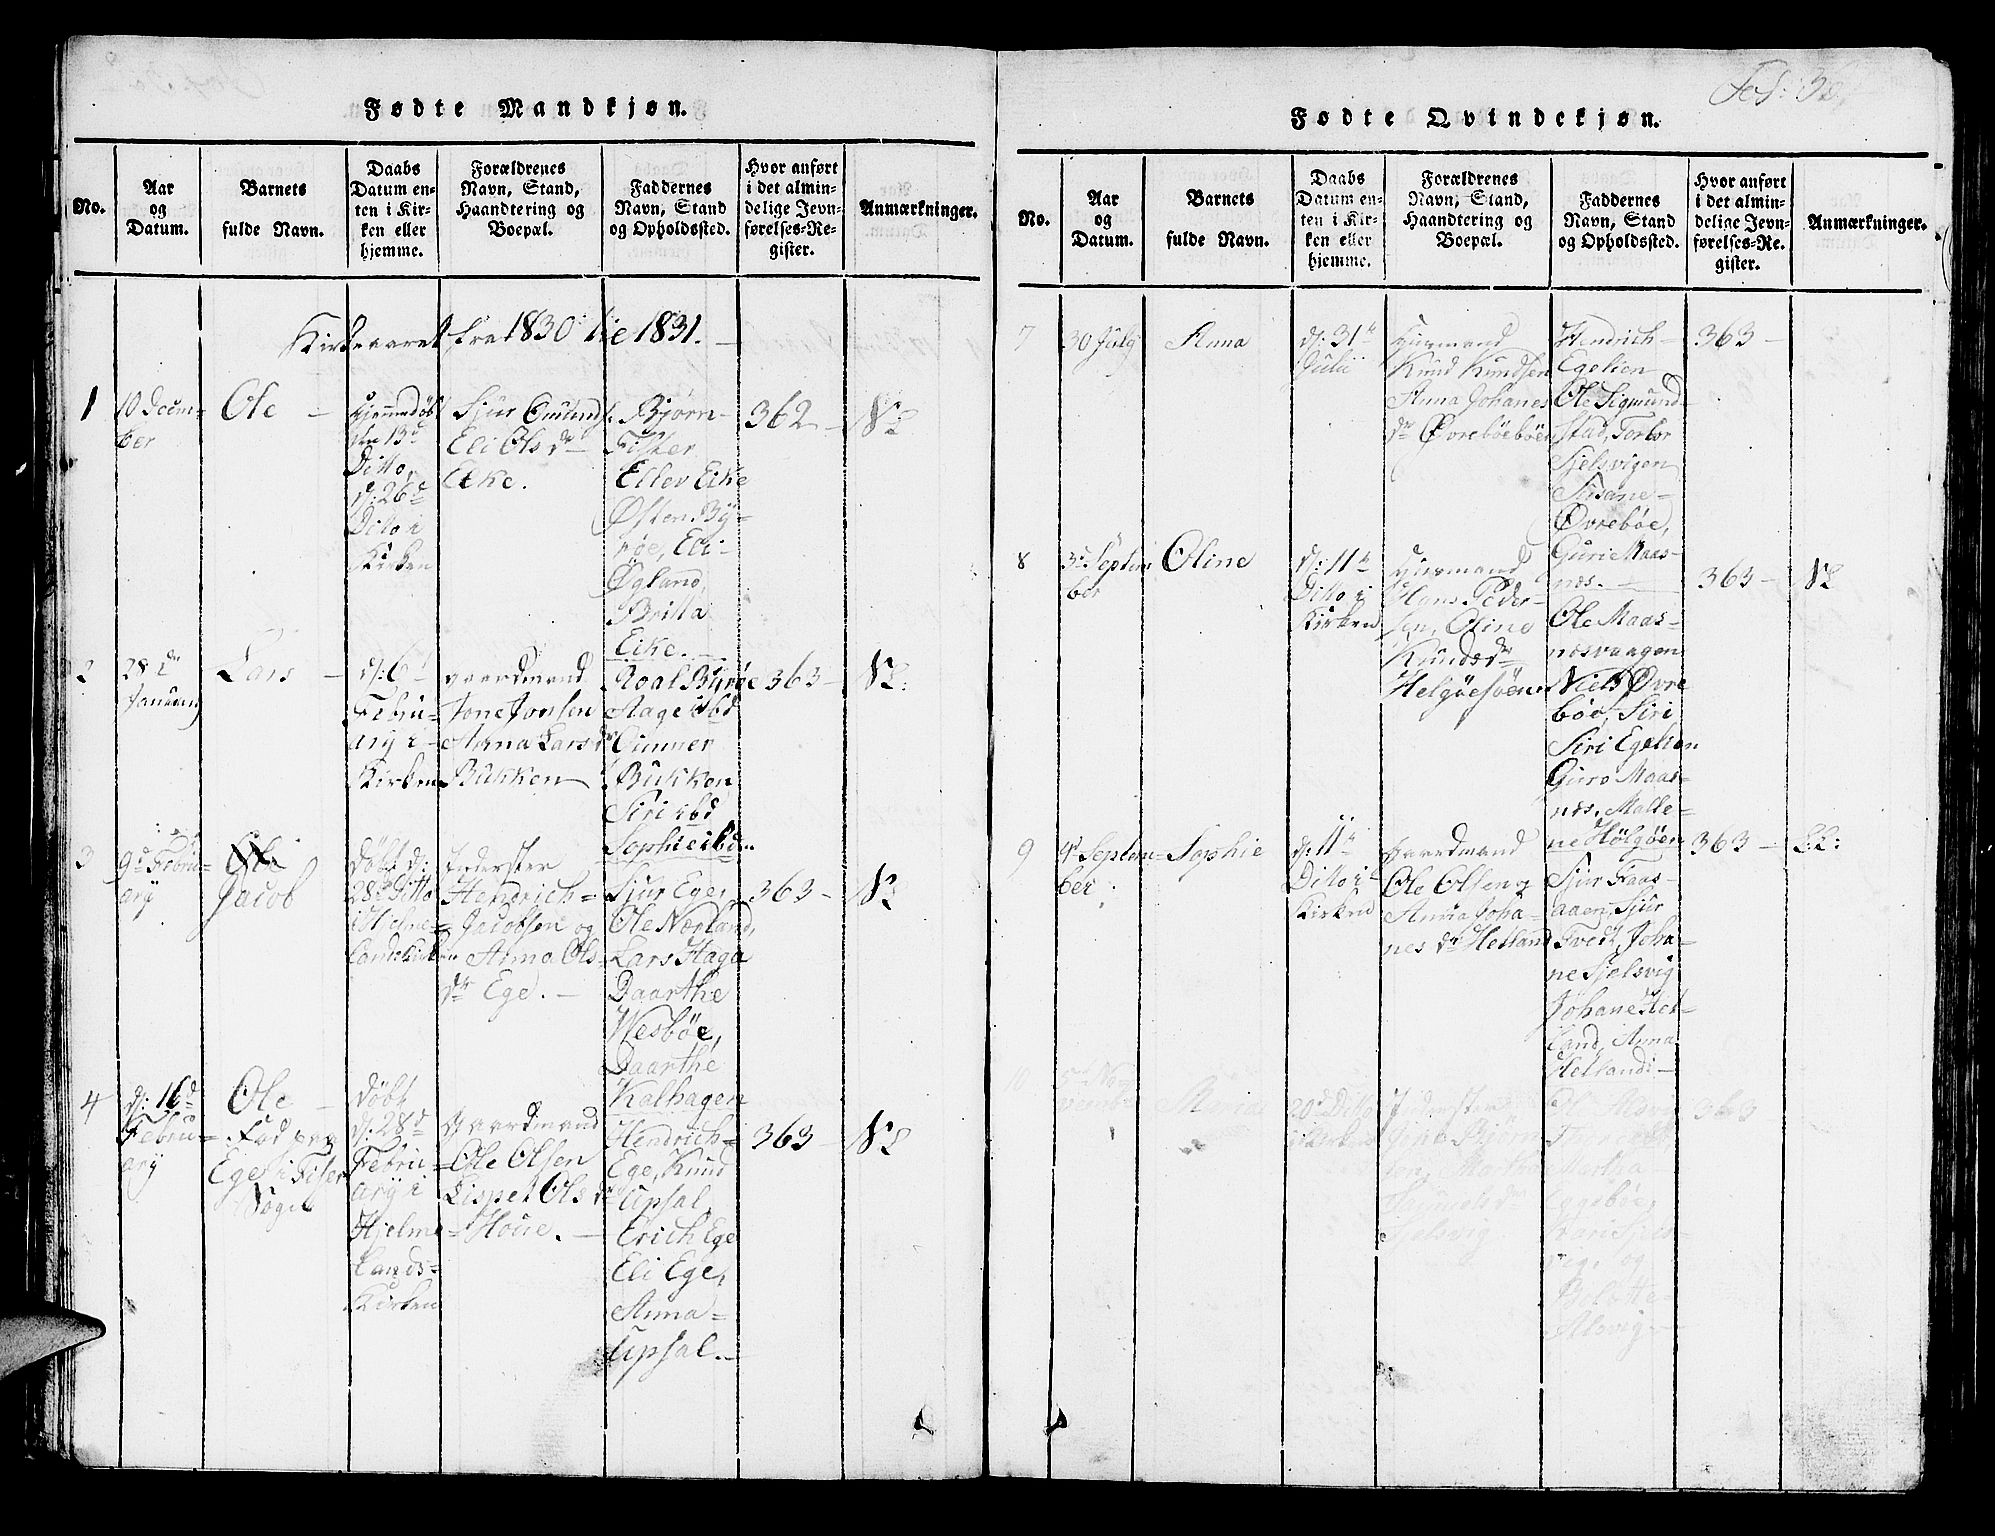 Fødte Mandkjøn.
No.
Aar
og
Datum.
Barnets
fulde Navn.
Daabs
Datum en-
ten i Kir-
ken eller
hjemme.
Forældrenes
Navn, Stand,
Haandtering og
Boepæl.
Faddernes
Navn, Stand
og Opholdssted.
Hvor anført
i det almin-
delige Jevn-
førelses-Re-
gister.
Anmærkninger.
Kirkeaaret fra 1830 til 1831.
1
10 Decem-
ber
Ole
Hjemmedøbt
den 13d
Ditto,
d: 26d
Ditto i
Kirken
Sjur Omunds.
Eli Olsdr
Eike.
Bjørn
Fister
Ellev Eike
Østen By-
røe, Eli
Øgland,
Britta
Eike.
362
2
28de
January
Lars
d: 6d
Febru-
ary i
Kirken
Gaardmand
Tone Jonsen
Anna Larsdr
Bukken
Roal Byrøe
Aage ibd
Gunner
Bukken
Siri ibd
Sophie ibd
363
3
9d Febru-
ary
Ole
Jacob
Døbt d:
28d Ditto
i Hjelme-
landskirken
Inderster
Hendrich
Jacobsen og
Anna Ols-
dr Ege.
Sjur Ege,
Ole Nærland,
Lars Haga
Daarthe
Wesbøe,
Daarthe
Kalhagen
363
4
d: 16d
Febru-
ary
Ole
Fød paa
Ege i Fister
Sogn
Døbt
d: 28d
Febru-
ary i
Hjelme-
lands-
Kirken
Gaardmand
Ole Olsen
Lispet Olsdr
Houe.
Hendrich
Ege, Knud
Upsal,
Erich Ege
Eli Ege,
Anna
Upsal.
363
Fødte Qvindekjøn.
No.
Aar
og
Datum.
Barnets
fulde Navn.
Daabs
Datum en-
ten i Kir-
ken eller
hjemme.
Forældrenes
Navn, Stand,
Haandtering og
Boepæl.
Faddernes
Navn, Stand
og Opholdssted.
Hvor anført
i det almin-
delige Jevn-
førelses-Re-
gister.
Anmærkninger.
7
30 July
Anna
d: 31te
Julii
Huusmand
Knud Knudsen
Anna Johanes
dr Øvrebøebøen
Hendrich
Egelien
Ole Sigmund-
stad, Torbor
Sjelsvigen
Susane
Øvrebøe,
Guri Maas-
næs.
363
8
3d Septem-
ber
Oline
d: 11te
Ditto i
Kirken
Huusmand
Hans Peder-
sen, Oline
Knudsdr
Helgøesøen
Ole Maas-
næsvaagen
Niels Øvre
bøe, Siri
Siri Egelien
Guro Maas-
næs, Malle-
ne Hølgøen
363
9
4d Septem-
ber
Sophie
d: 11te
Ditto i
Kirken
Gaardmand
Ole Olsen og
Anna Joha-
nes dr Helland
Sjur Faas-
aaen, Sjur
Tvedt, Joha-
ne Sjelsvig
Johane Hel-
land, Anna
Helland
363
10
5d No-
vember
20d Ditto
i Kirken
Inderster
Martha
Samuelsdr
Sjelsvig
Martha
Eggebøe,
Kari Sjels-
vig, og
Bolette
Alsvig
363